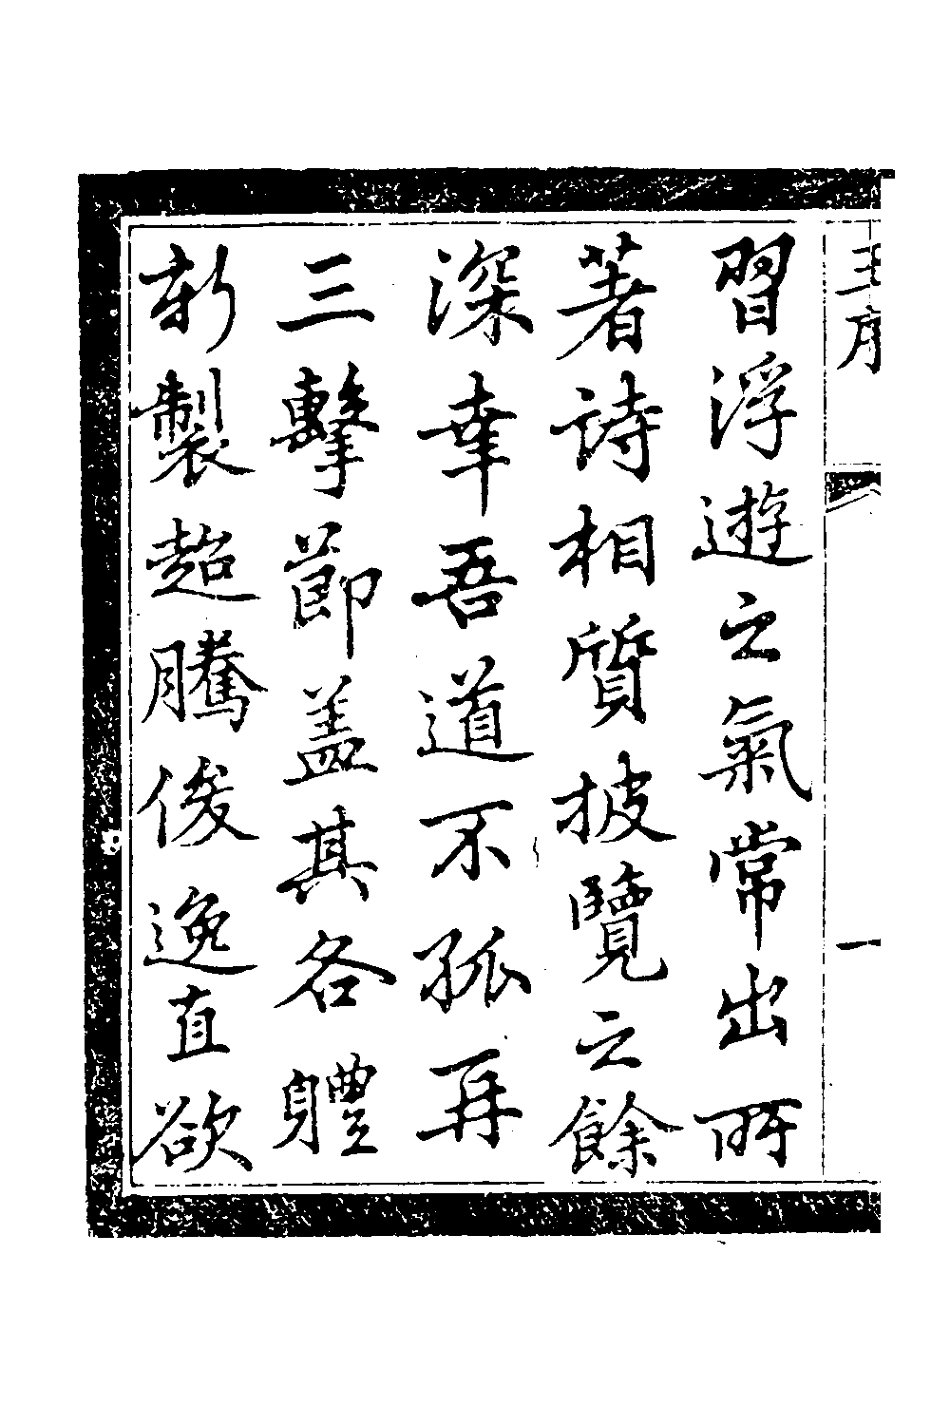 王序
一
習浮遊之氣常出所
著詩相質披覽之餘
深幸吾道不孤再
三擊節盖其各體
新製超騰俊逸直欲